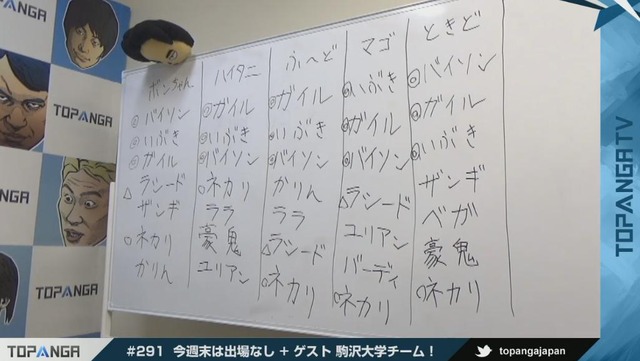 PANGA
TOPANGA
TOPANGA
ボンちゃん
◎バイソン
◎いぶき
◎ガイル
△ラシード
ザンギ
○ネカリ
かりん
ハイタニ
◎ガイル
◎いぶき
◎バイソン
○ネカリ
ララ
豪鬼
ユリアン
ふ〜ど
◎ガイル
◎いぶき
◎バイソン
かりん
ララ
△ラシード
○ネカリ
マゴ
◎いぶき
◎ガイル
◎バイソン
△ラシード
ユリアン
バーディ
○ネカリ
ときど
◎バイソン
◎ガイル
◎いぶき
ザンギ
ベガ
豪鬼
○ネカリ
TOPANGA TV
TOPANGA #291 今週末は出場なし + ゲスト 駒沢大学チーム! topangajapan